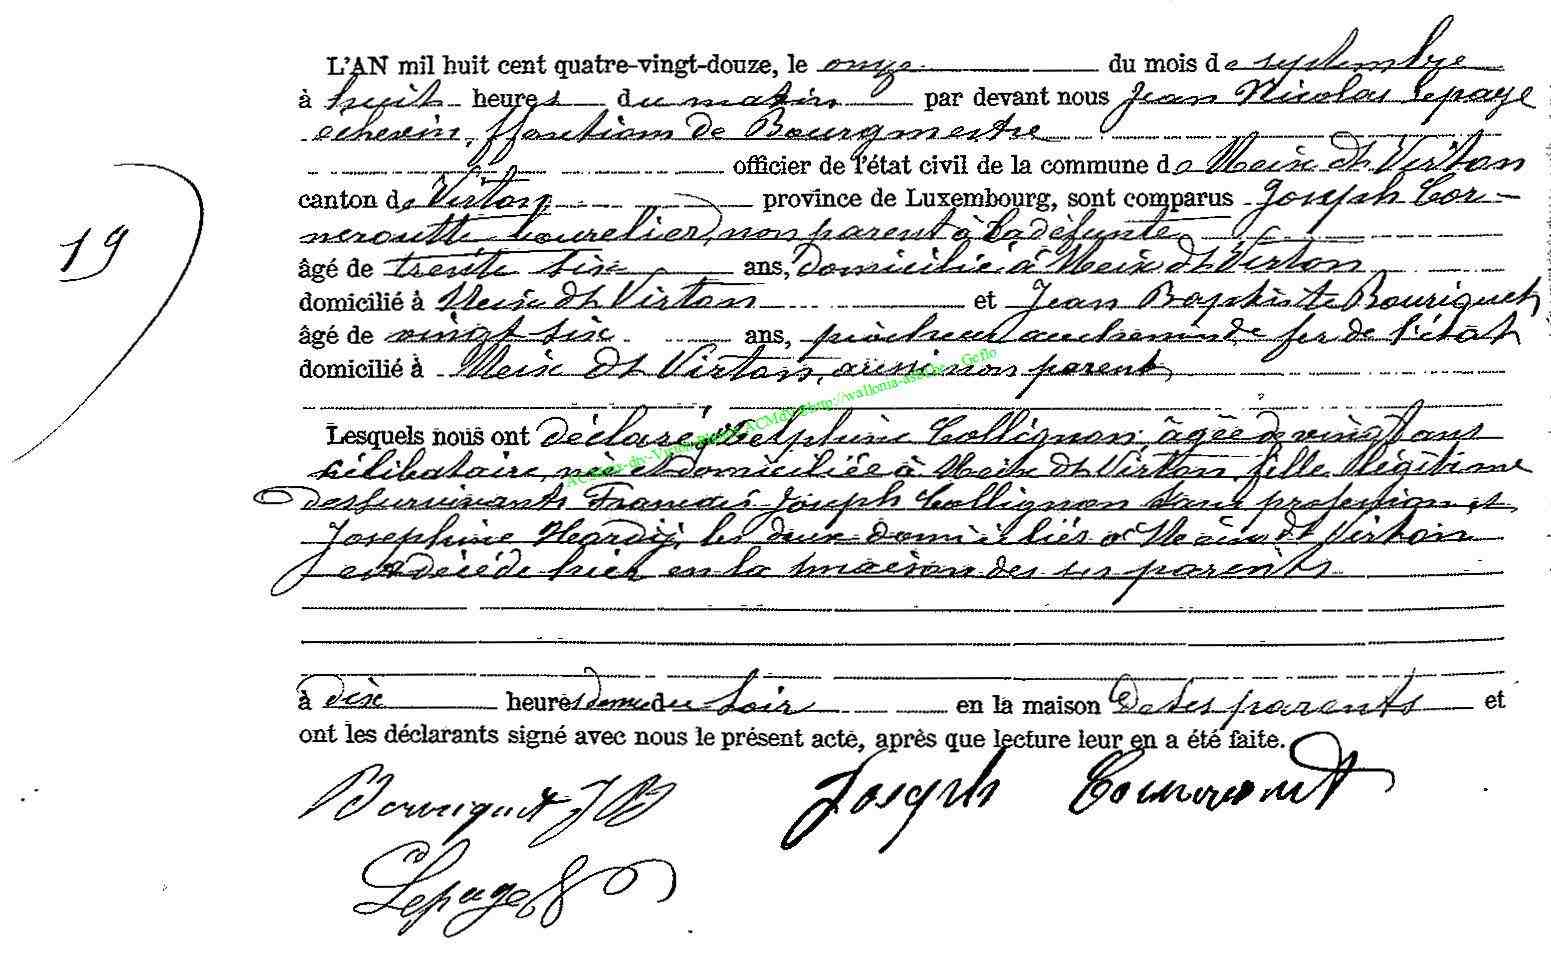 L'AN mil huit cent quatre-vingt-douze, le onze du mois de septembre
à huit heures du matin par devant nous Jean Nicolas Lepage
échevin, ffonctions de Bourgmestre
officier de l'état civil de la commune de Meix dt Virton
canton de Virton province de Luxembourg, sont comparus Joseph Cor-
nerotte bourelier, non parent à la défunte
âgé de trente six ans, domicilié à Meix dt Virton
domicilié à Meix dt Virton et Jean Baptiste Bouriquet
âgé de vingt six ans, piocheur au chemin de fer de l'état
domicilié à Meix dt Virton, aussi non parent
19
Lesquels nous ont déclaré, Delphine Collignon, âgée de vingt ans
célibataire, née et domiciliée à Meix dt Virton, fille légitime
des survivants François Joseph Collignon sans profession et
Josephine Hardy, les deux domiciliés à Meix dt Virton
est décédé hier en la maison des ses parents
à dix heures demie du soir en la maison de ses parents et
ont les déclarants signé avec nous le présent acte, après que lecture leur en a été faite.
Bouriquet J B Joseph
Lepage